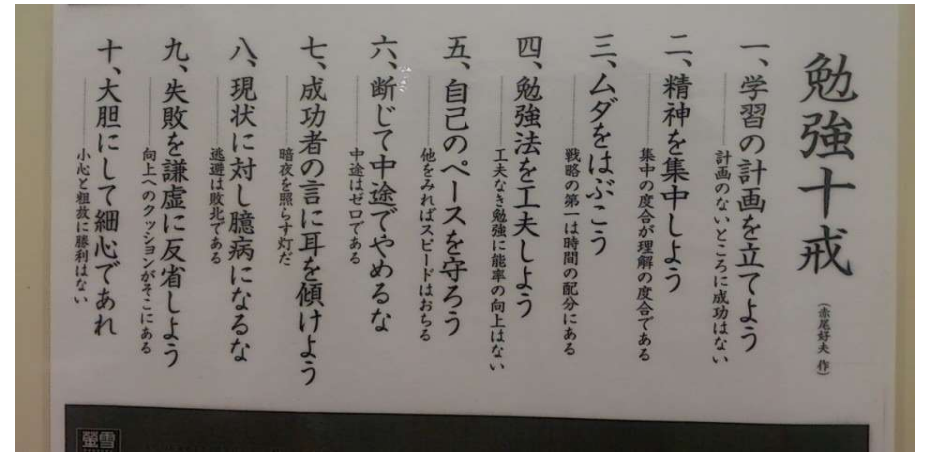 勉強十戒
(赤尾好夫 作)
一、学習の計画を立てよう
計画のないところに成功はない
二、精神を集中しよう
集中の度合が理解の度合である
三、ムダをはぶこう
戦略の第一は時間の配分にある
四、勉強法を工夫しよう
工夫なき勉強に能率の向上はない
五、自己のペースを守ろう
他をみればスピードはおちる
六、断じて中途でやめるな
中途はゼロである
七、成功者の言に耳を傾けよう
暗夜を照らす灯だ
八、現状に対し臆病になるな
逃避は敗北である
九、失敗を謙虚に反省しよう
向上へのクッションがそこにある
十、大胆にして細心であれ
小心と粗放に勝利はない